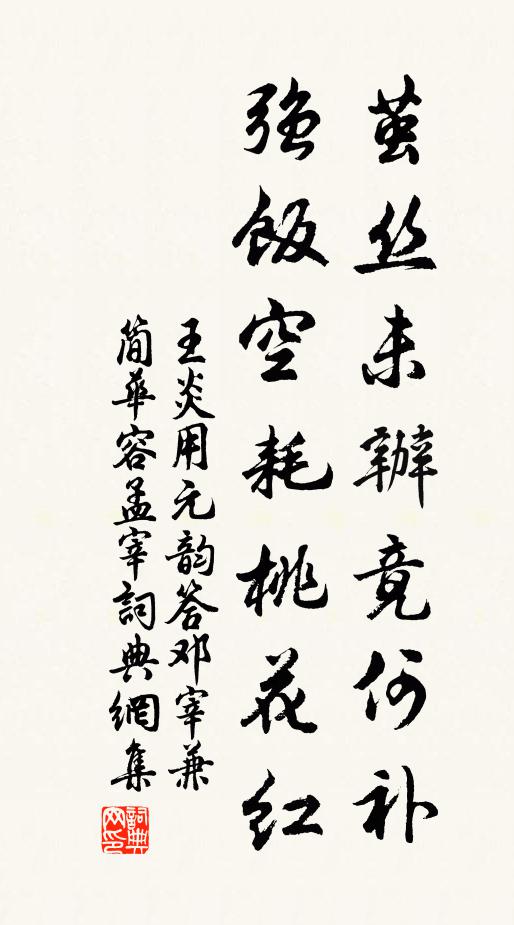 茧丝未办竟何补
强饭空耗桃花红
王炎用元韵答邓宰兼
简华容孟宰詞典網集
詞典网印